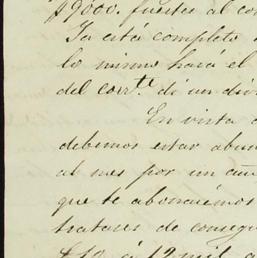 $9000. fuertes al con
Ya está completo
lo mismo hará el
del corr.te di un div
En vista
debemos estar abun
al mes por un añ
que te abonáremos
tratares de conseg
$10 á 12 mil a